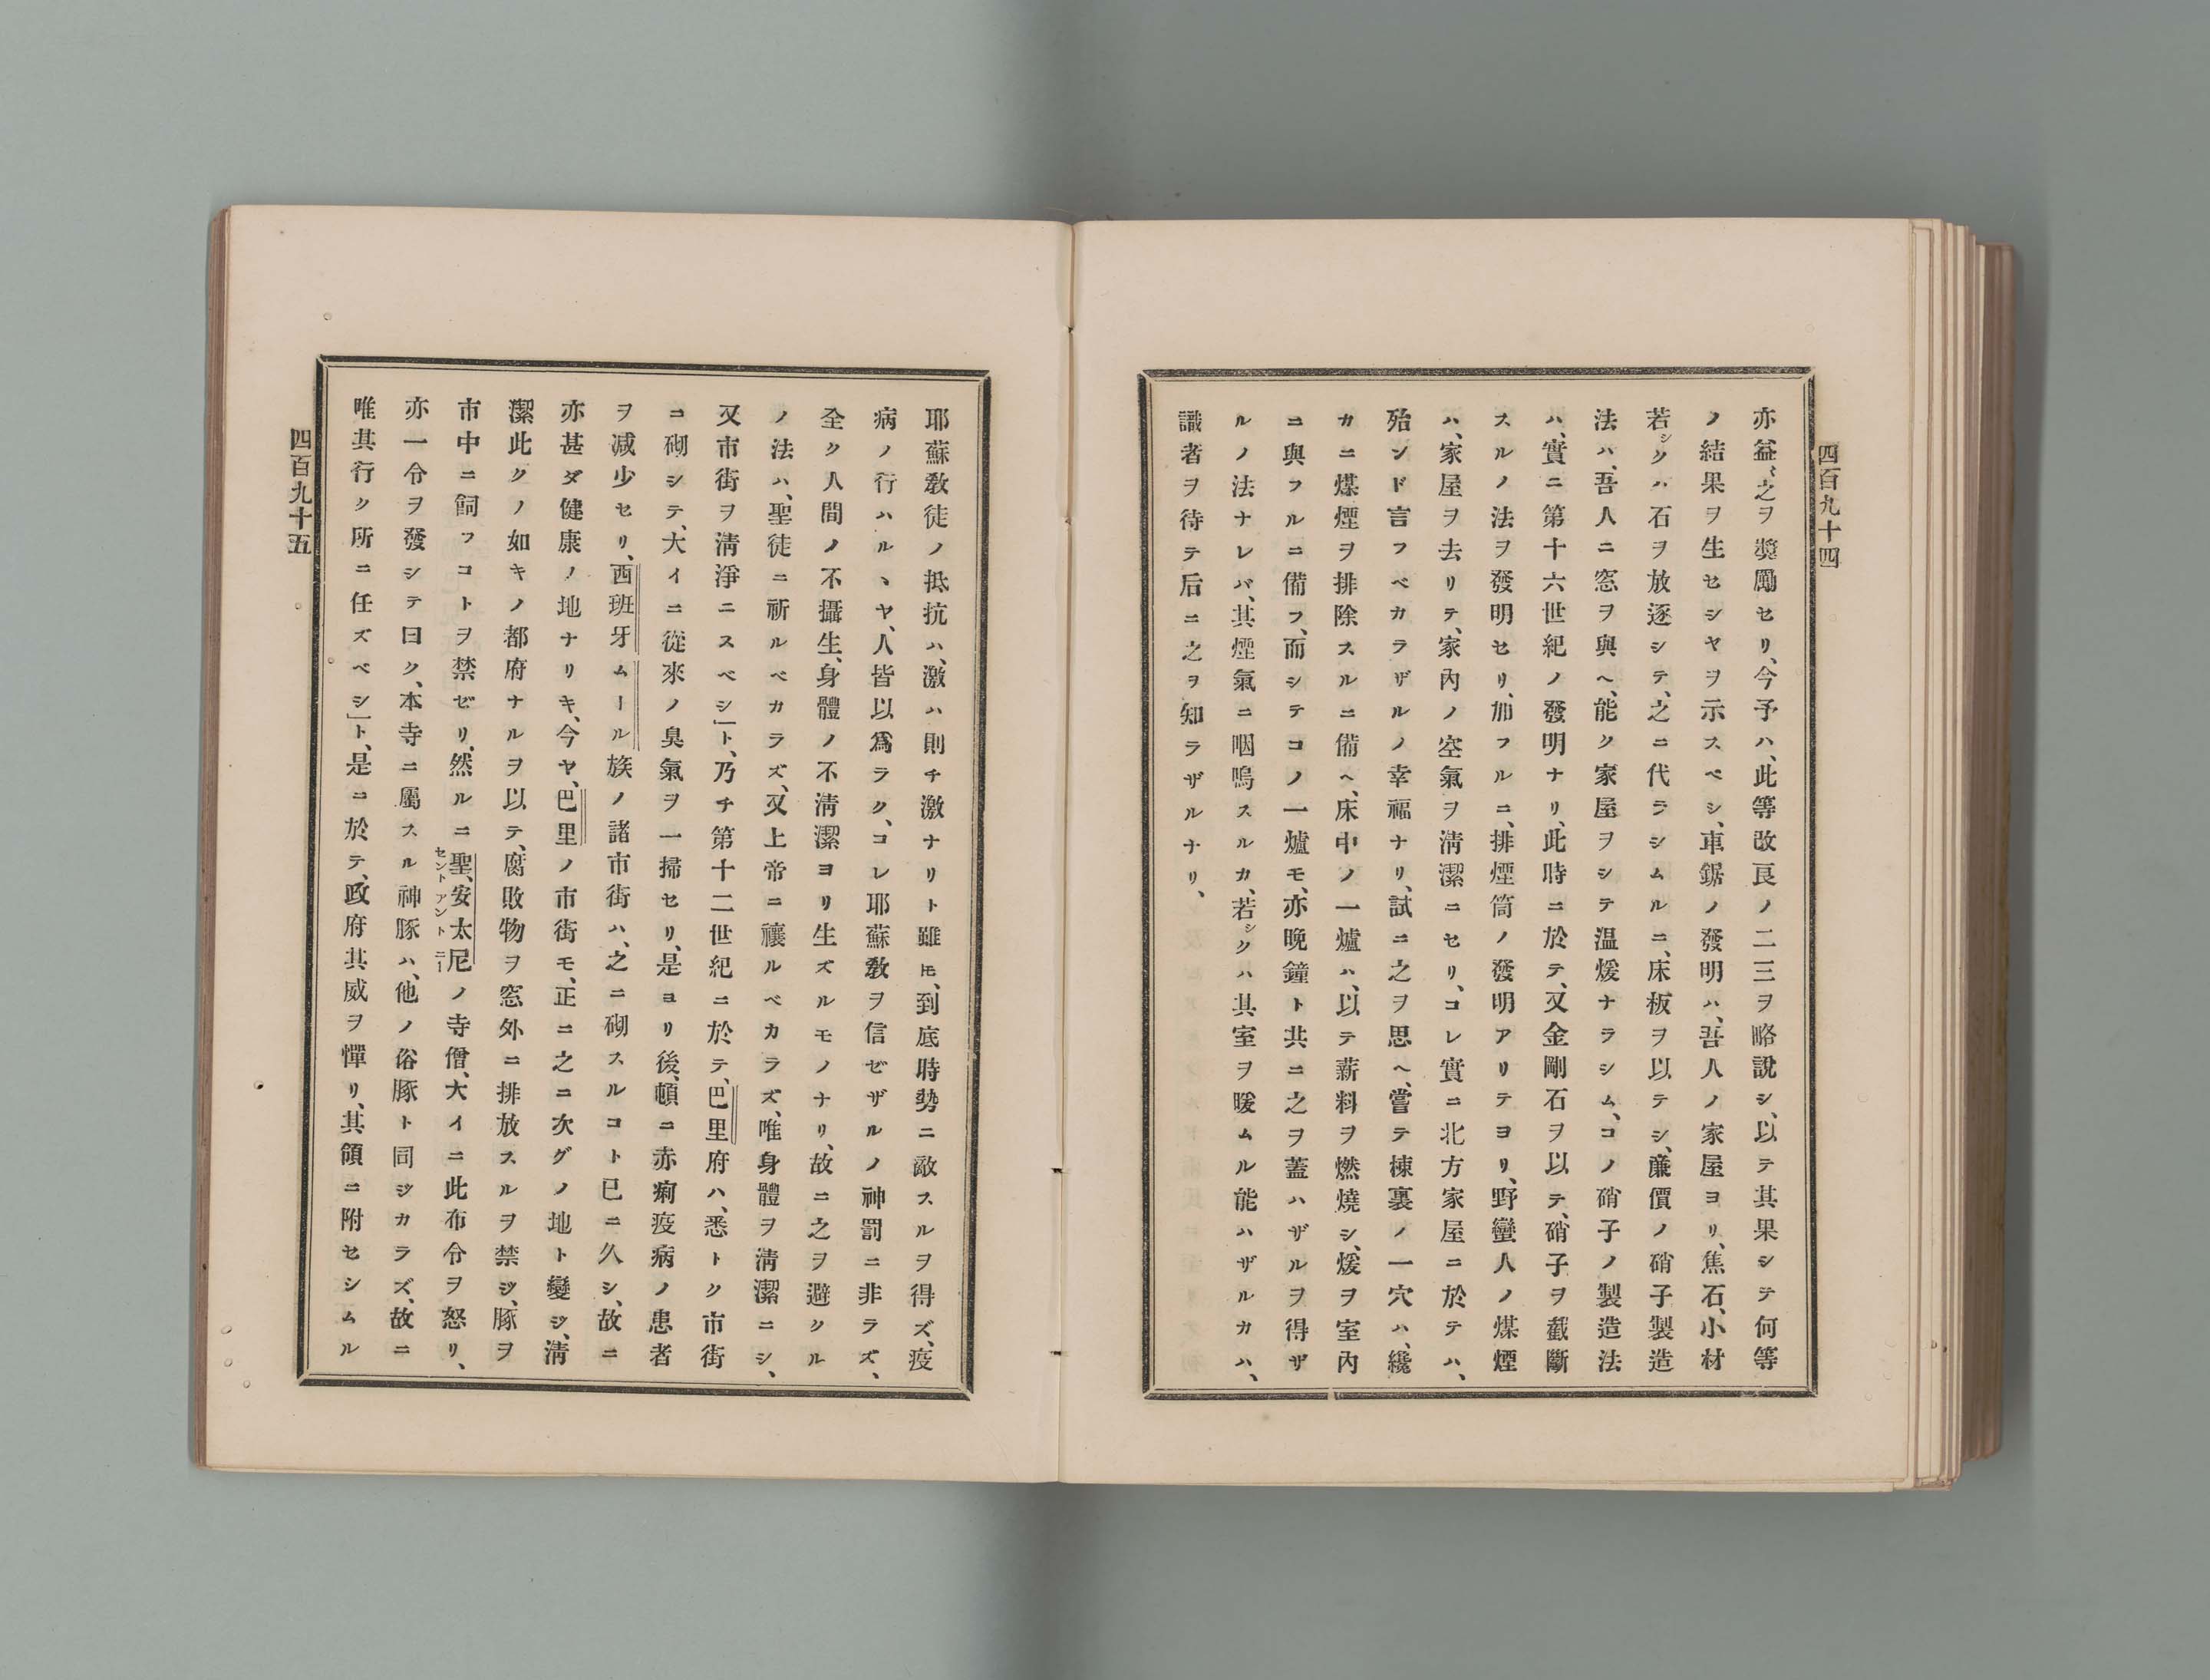 四百九十四
亦益〻之ヲ奬勵セリ、今予ハ、此等改良ノ二三ヲ略說シ、以テ其果シテ何等
ノ結果ヲ生セシヤヲ示スベシ、車鋸ノ發明ハ、吾人ノ家屋ヨリ、焦石、小材
若シクハ石ヲ放逐シテ、之ニ代ラシムルニ、床板ヲ以テシ、廉價ノ硝子製造
法ハ、吾人ニ窓ヲ與ヘ、能ク家屋ヲシテ温煖ナラシム、コノ硝子ノ製造法
ハ、實ニ第十六世紀ノ發明ナリ、此時ニ於テ、又金剛石ヲ以テ、硝子ヲ截斷
スルノ法ヲ發明セリ、加フルニ、排煙筒ノ發明アリテヨリ、野蠻人ノ煤煙
ハ、家屋ヲ去リテ、家內ノ空氣ヲ淸潔ニセリ、コレ實ニ北方家屋ニ於テハ、
殆ンド言フベカラザルノ幸福ナリ、試ニ之ヲ思ヘ、嘗テ棟裏ノ一穴ハ、纔
カニ煤煙ヲ排除スルニ備ヘ、床中ノ一爐ハ、以テ薪料ヲ燃燒シ、煖ヲ室內
ニ與フルニ備フ、而シテコノ一爐モ、亦晩鐘ト共ニ之ヲ蓋ハザルヲ得ザ
ルノ法ナレバ、其煙氣ニ咽嗚スルカ、若シクハ其室ヲ暖ムル能ハザルカハ、
識者ヲ待テ后ニ之ヲ知ラザルナリ、
耶蘇敎徒ノ抵抗ハ、激ハ則チ激ナリト雖𪜈、到底時勢ニ敵スルヲ得ズ、疫
病ノ行ハルヽヤ、人皆以爲ラク、コレ耶蘇敎ヲ信ゼザルノ神罰ニ非ラズ、
全ク人間ノ不攝生、身體ノ不淸潔ヨリ生ズルモノナリ、故ニ之ヲ避クル
ノ法ハ、聖徒ニ祈ルベカラズ、又上帝ニ禳ルベカラズ、唯身體ヲ淸潔ニシ、
又市街ヲ淸淨ニスベシ」ト、乃チ第十二世紀ニ於テ、巴里府ハ、悉トク市街
ニ砌シテ、大イニ從來ノ臭氣ヲ一掃セリ、是ヨリ後、頓ニ赤痢疫病ノ患者
ヲ減少セリ、西班牙ムール族ノ諸市街ハ、之ニ砌スルコト已ニ久シ、故ニ
亦甚ダ健康ノ地ナリキ、今ヤ、巴里ノ市街モ、正ニ之ニ次グノ地ト變ジ、淸
潔此クノ如キノ都府ナルヲ以テ、腐敗物ヲ窓外ニ排放スルヲ禁ジ、豚ヲ
市中ニ飼フコトヲ禁ゼリ、然ルニ聖、安太尼ノ寺僧、大イニ此布令ヲ怒リ、
セント アントニー
亦一令ヲ發シテ曰ク、本寺ニ屬スル神豚ハ、他ノ俗豚ト同ジカラズ、故ニ
唯其行ク所ニ任ズベシ」ト、是ニ於テ、政府其威ヲ憚リ、其領ニ附セシムル
四百九十五